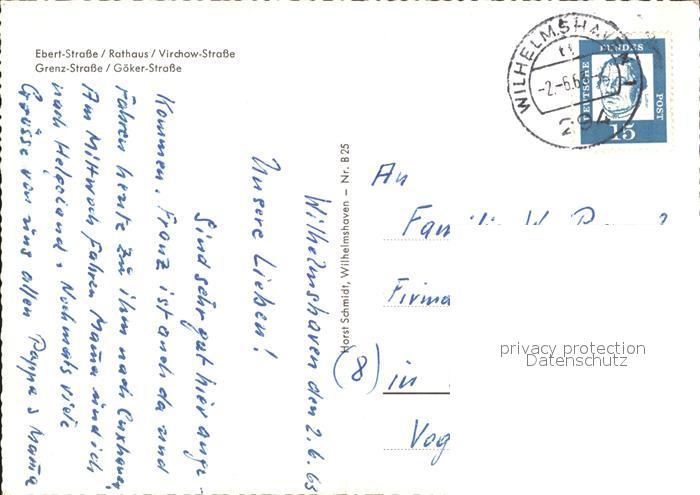 Ebert-Straße / Rathaus / Virchow-Straße
Grenz-Straße / Göker-Straße
Wilhelmshaven den 2.6.63
Unsere Lieben!
Sind sehr gut hier ange-
kommen. Franz ist auch da und
fahren heute zu ihm nach Cuxhaven
Am Mittwoch fahren Mama und ich
nach Helgoland. Nochmals viele
Grüsse von uns allen Pappa & Mama
Horst Schmidt, Wilhelmshaven – Nr. B 25
WILHELMSHAVEN 1
tt
-2.-6.63
294
DEUTSCHE BUNDES POST
Luther
15
An
Fam
Firma
(8) in
Vog
privacy protection
Datenschutz